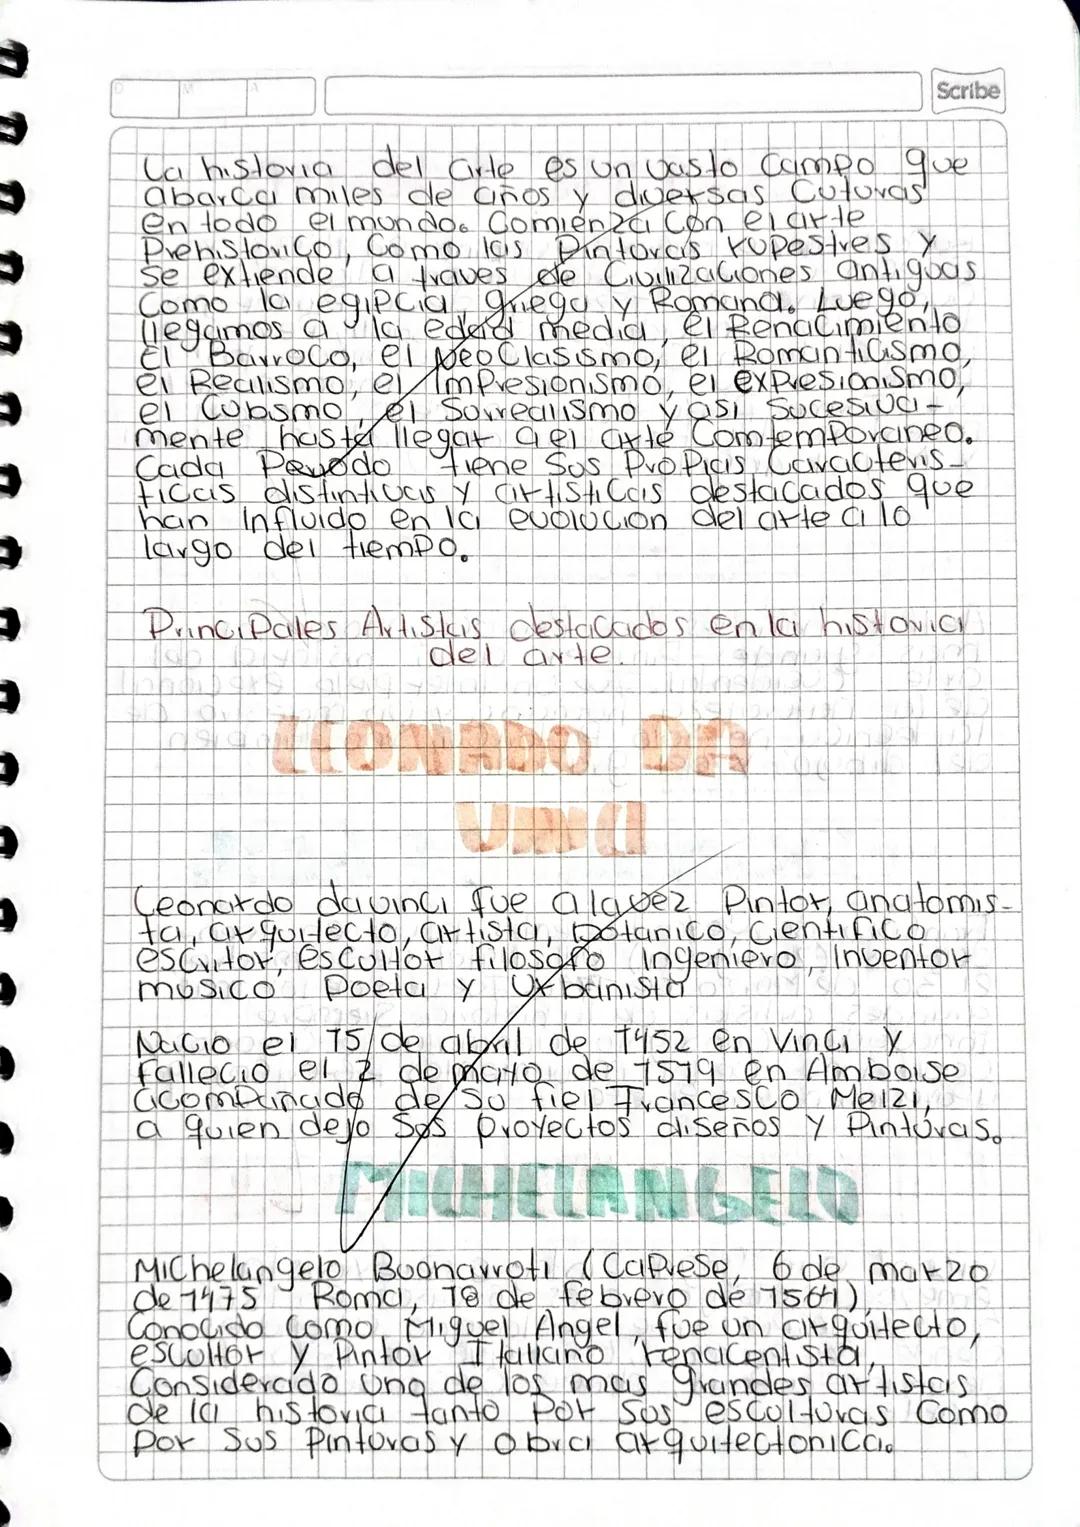 D M A
Scribe
La historia del arte es un vasto Campo que
abarca miles de años y diversas Culturas
en todo el mundo. Comienza Con el arte
Prehistorico, Como las Pintoras rupestres y
se extiende a traves de Civilizaciones antiguas
Como la egipcia, griega y Romana. Luego,
llegamos a la edad media, el Renacimiento
El Barroco, el NeoClasismo, el Romanticismo,
el Realismo, el ImPresionismo, el exPresionismo,
el Cubsmo, el Sorrealismo y asi Sucesiva-
mente hasta llegar a el arte ComtemPoraneo.
Cada Periodo tiene Sus ProPias Caracteris-
ticas distintivas y artisticas destacados que
han Influido en la evolucion del arte a lo
largo del tiemPo.
PrinciPales Artistas destacados en la historia
del arte.
LEONADO DA
VINCI
Leonardo davinci fue a la vez Pintor, anatomis-
ta, arquitecto, artista, botanico, Cientifico
escritor, escultor filosofo Ingeniero, Inventor
musico Poeta y Urbanista
Nacio el 15 de abril de 1452 en Vinci y
fallecio el 2 de mayo de 1519 en Amboise
acomPañado de Su fiel Francesco Melzi,
a quien dejo Sus Proyectos diseños y Pinturas.
MICHELANGELO
MIChelangelo Buonarroti (CaPrese, 6 de marzo
de 1475 Roma, 18 de febrero de 1564),
Conocido Como Miguel Angel, fue un arquitecto,
escultor y Pintor Italiano renacentista,
Considerado uno de los mas grandes artistas
de la historia tanto Por Sus esculturas Como
Por Sus Pinturas y obra arquitectonica.